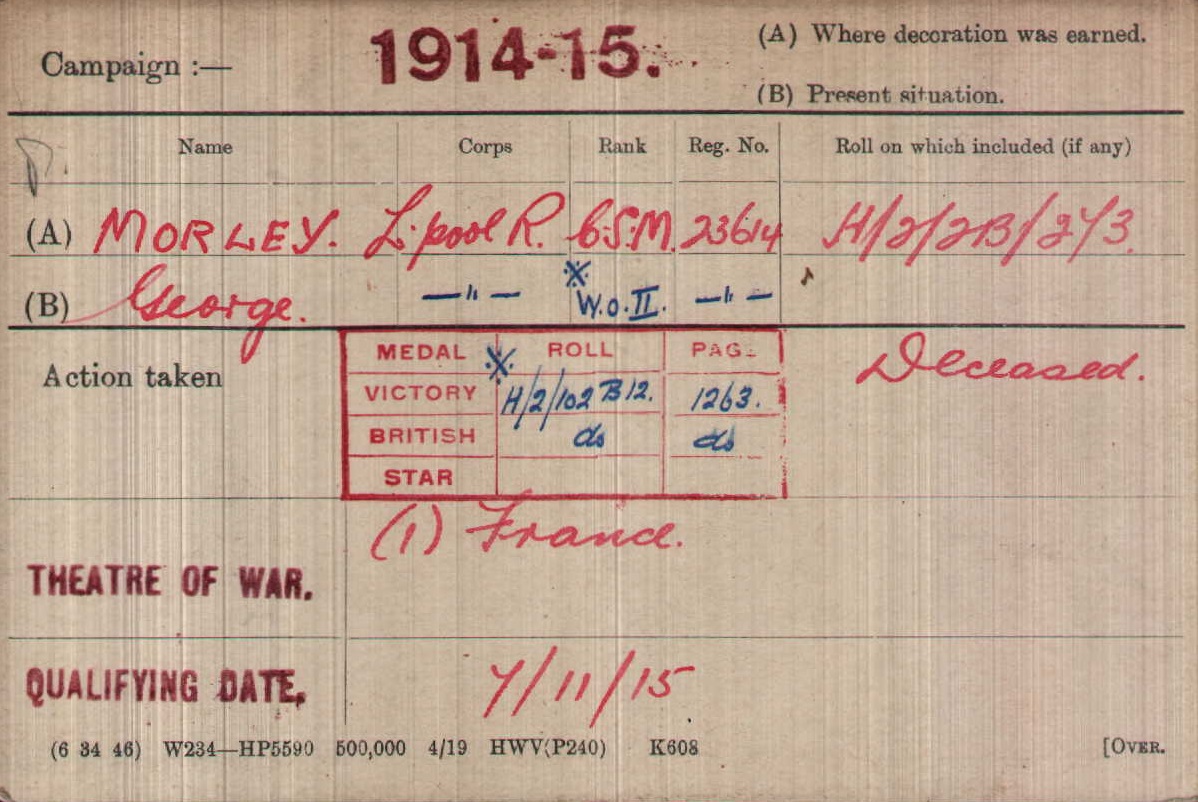 Campaign :— 1914-15. (A) Where decoration was earned.
(B) Present situation.
Name Corps Rank Reg. No. Roll on which included (if any)
(A) MORLEY. L'pool R. C.S.M. 23614 H/2/2B/273.
(B) George. —"— ※ W.O.II. —"—
Action taken
MEDAL ※ ROLL PAGE
VICTORY H/2/102 B12. 1263.
BRITISH do do
STAR
Deceased.
THEATRE OF WAR. (1) France.
QUALIFYING DATE, 7/11/15
(6 34 46) W234—HP5590 500,000 4/19 HWV(P240) K608 [OVER.